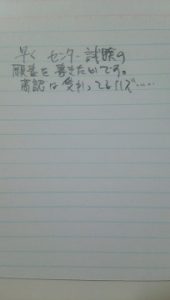 早く センター試験の
願書を 書きたいです。
高認は 受かってるハズ……